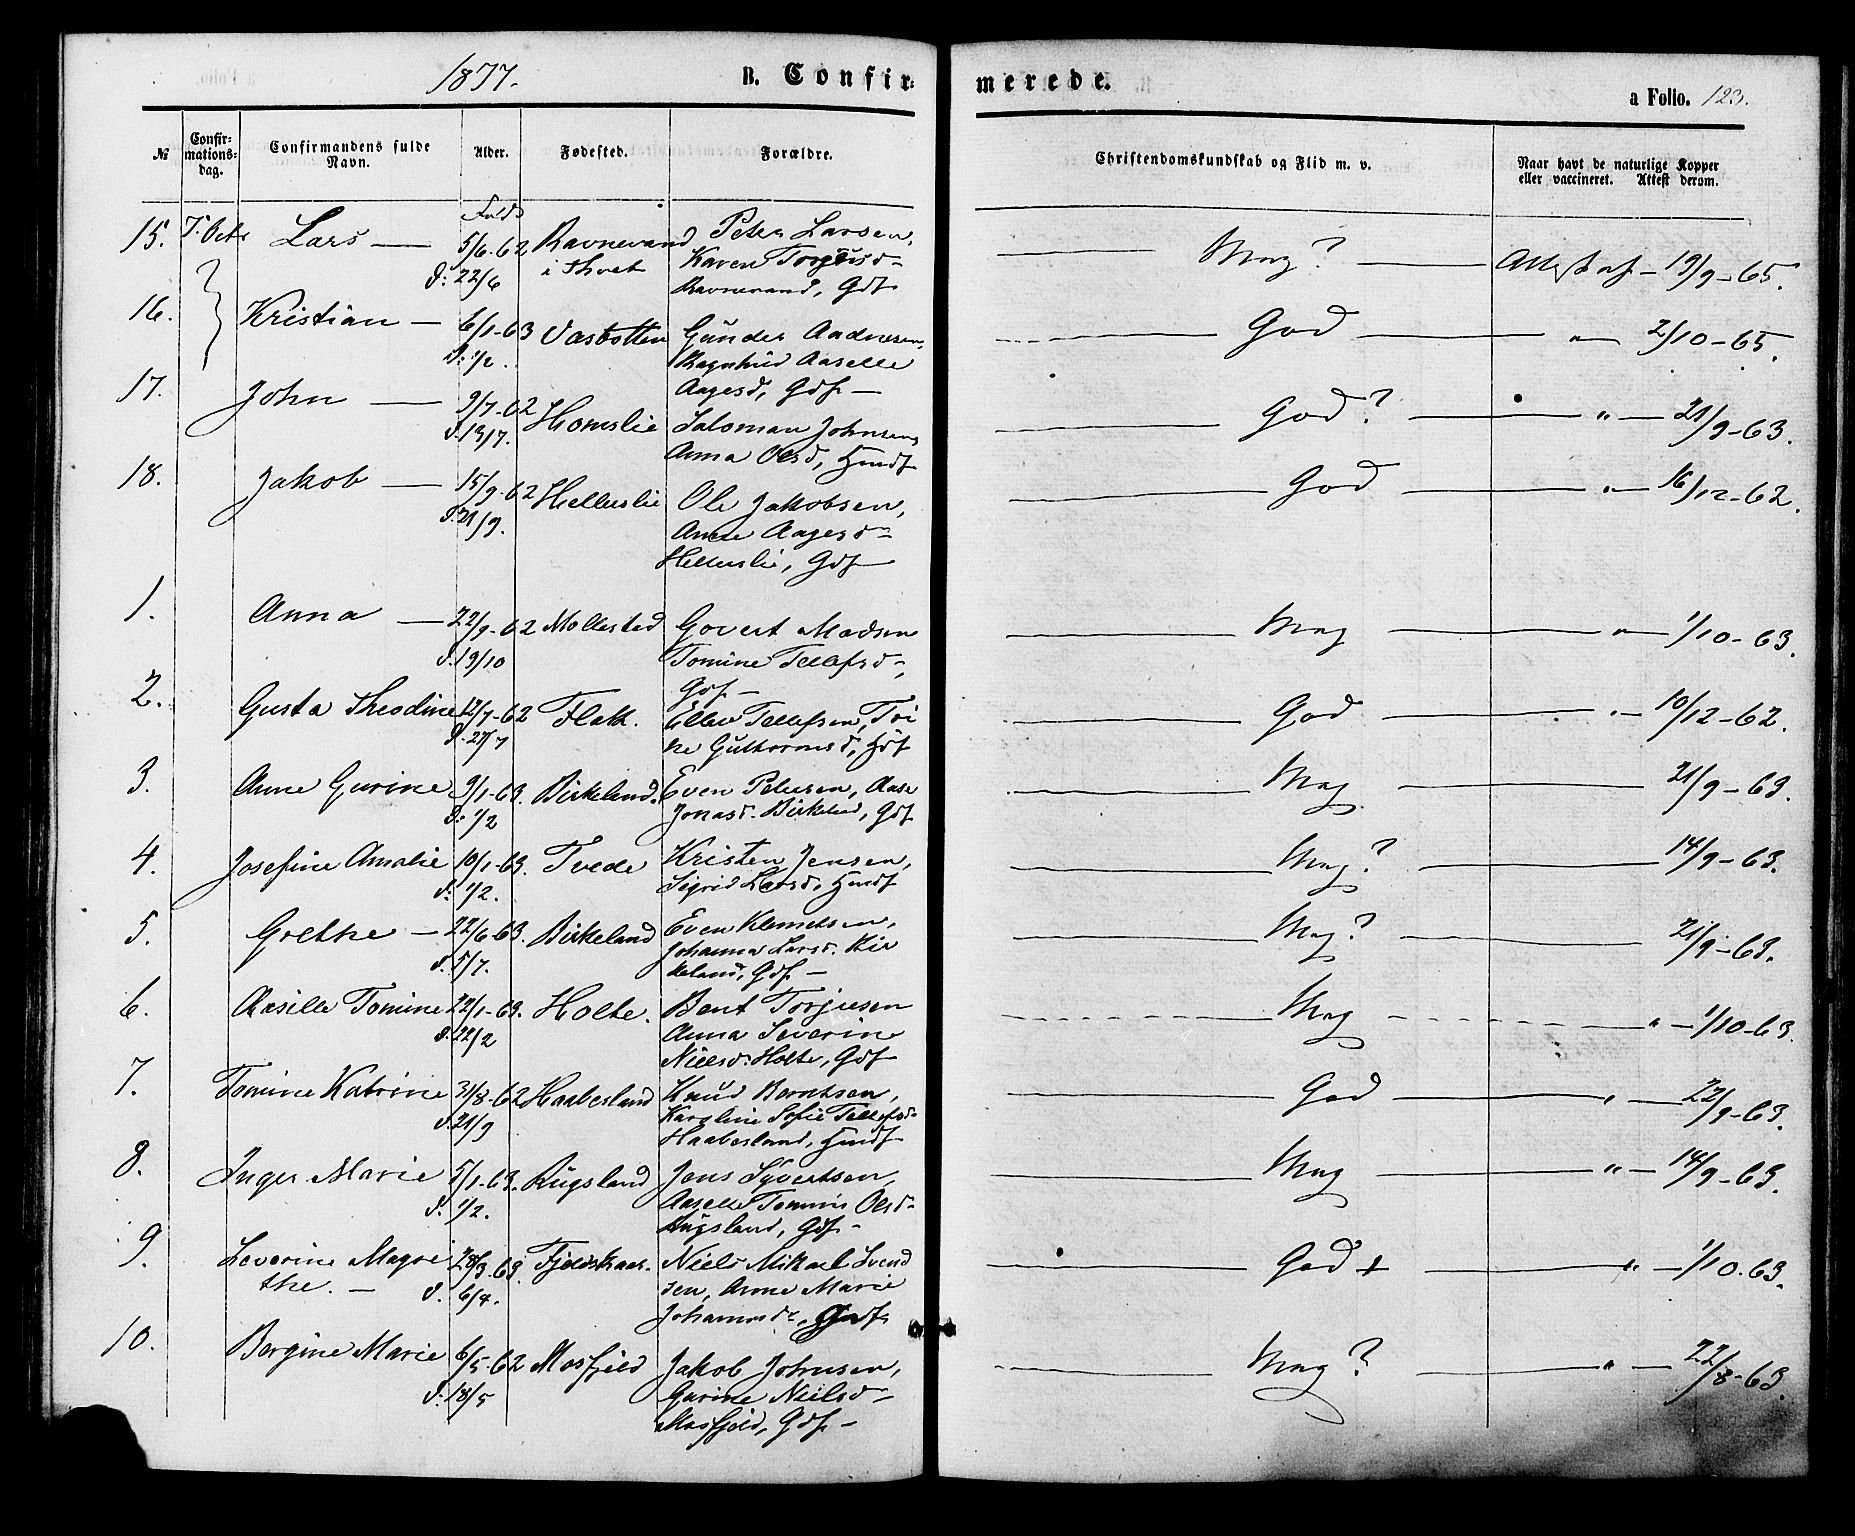 1877.
B. Confir-
merede.
a Folio. 123.
№
Confir-
mations-
dag.
Confirmandens fulde
Navn.
Alder.
Fødested.
Forældre.
Christendomskundskab og Flid m. v.
Naar havt de naturlige Kopper
eller vaccineret. Attest derom.
15. 7. Octr Lars — Født 5/6-62 D: 22/6 Ravnevand i Thvet
Peter Larsen,
Karen Torjusd-
Ravnevand, Gdf
Mag? Attest af 19/9-65.
16. Kristian — 6/1-63 D: 1/2. Vasbotten
Gunder Aadnesen,
Ragnhild Aaselle
Aagesd, Gdf —
God " 2/10-65.
17. John — 9/7-62 D. 13/7. Homslie
Saloman Johnsen,
Anna Olsd, Hmdf
God? " 21/9-63.
18. Jakob — 15/9-62 D. 21/9. Hellerslie
Ole Jakobsen,
Anne Aagesd-
Hellerslie, Gdf
God " 16/12-62.
1. Anna — 22/9-62 D. 19/10 Mollestad
Govert Madsen
Tomine Tellefsd-,
Gdf —
Mag " 1/10-63.
2. Gusta Theodine 12/7-62 D. 27/7 Flak.
Ellev Tellefsen, Tri
ne Guttormsd, Hdf
God " 10/12-62.
3. Anne Gurine 9/1-63. D: 1/2 Birkeland.
Even Petersen, Aase
Jonasd. Birkeland, Gdf
Mag. 21/9-63.
4. Josefine Amalie 10/1-63. D: 1/2. Tvede
Kristen Jensen,
Sigrid Larsd, Hmdf
Mag? 14/9-63.
5. Grethe — 22/6-63. D. 5/7. Birkeland
Even Klemetsen,
Johanna Larsd. Bir
keland, Gdf —
Mag? 21/9-63.
6. Aasille Tomine 22/1-63. D. 22/2 Holte.
Bent Torjusen
Anna Severine
Nielsd. Holte, Gdf
Mag " 1/10-63.
7. Tomine Katrine 31/8-62 D. 21/9 Haabesland
Knud Berntsen,
Karoline Sofie Tellefsd-
Haabesland, Hmdf
God " 22/9-63.
8. Inger Marie 5/1-63. D. 1/2. Rugsland
Jens Syvertsen,
Aaselle Tomine Olsd-
Rugsland, Gdf —
Mag " 14/9-63.
9. Severine Magre
the. — 28/3-63. D. 6/4. Fjeldskaar.
Niels Mikael Svend
sen, Anne Marie
Johannesd-, Gdf
God + " 1/10.63.
10. Bergine Marie 6/5-62 D. 18/5 Mosfjeld
Jakob Johnsen,
Gurine Nielsd-
Mosfjeld, Gdf —
Mag? " 22/8-63.